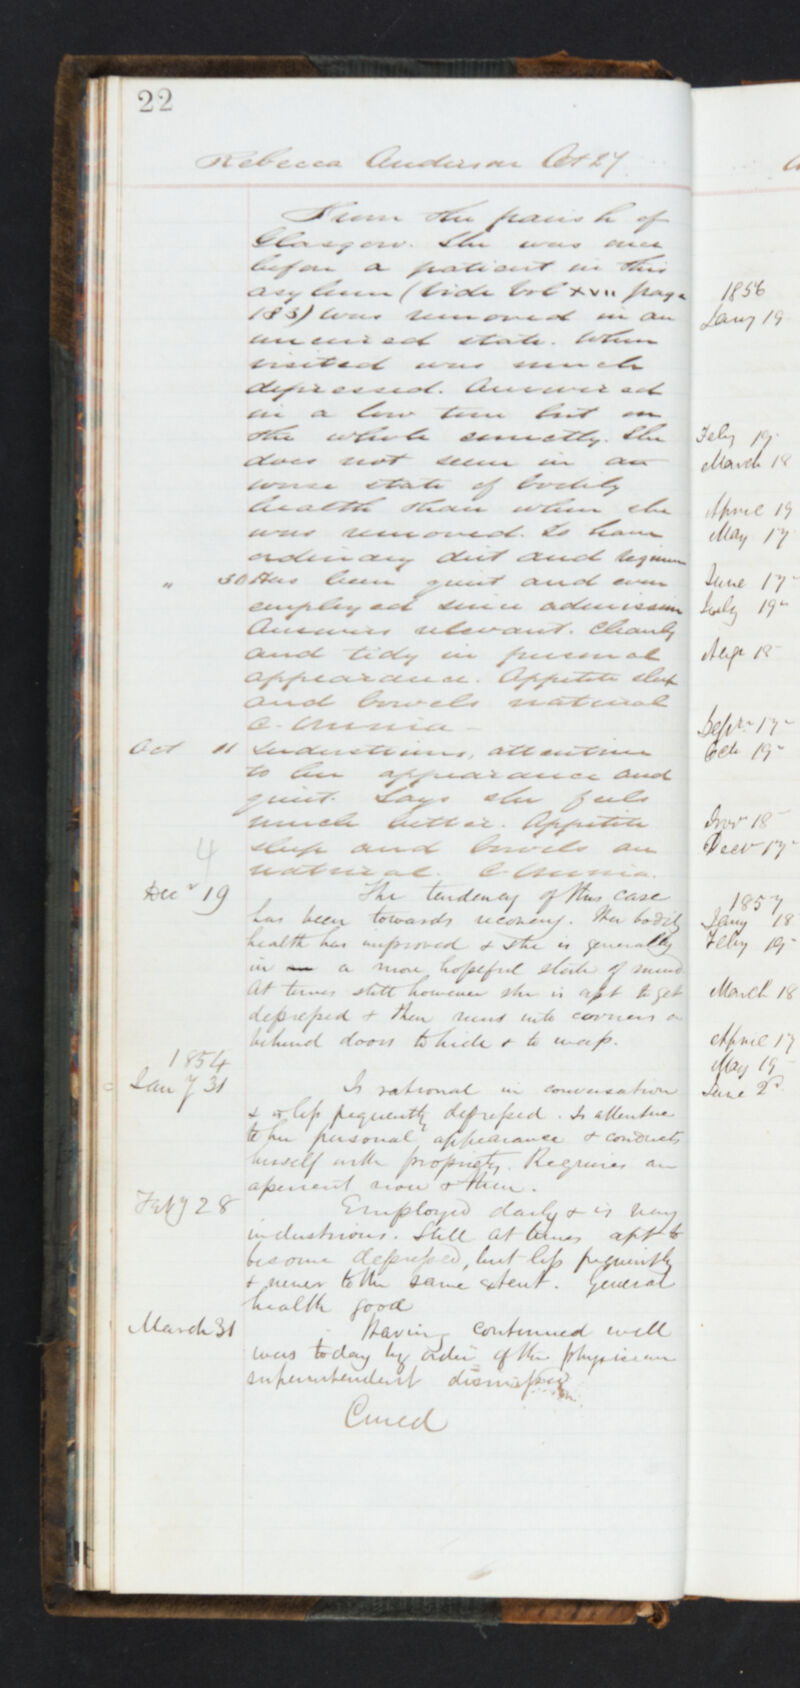 22
Rebecca Anderson Aet 27
From the parish of
Glasgow. She was once
before a patient in this
asylum (Vide Vol XVII page
183) was removed in an
uncured state. When
visited was much
depressed. Answered
in a low tone but on
the whole correctly. She
does not seem in a
worse state of bodily
health than when she
was removed. To have
ordinary diet and regimen
" 30 Has been quiet and even
employed since admission
Answers relevant. Cleanly
and tidy in personal
appearance. Appetite sleep
and bowels natural
C. Omnia -
Oct 11 Industrious, attentive
to her appearance and
quiet. Says she feels
much better. Appetite
4
sleep and bowels are
natural. C. Omnia.
Decr 19 The tendency of this case
has been towards recovery. Her bodily
health has improved & she is generally
in a more hopeful state of mind
At times still however she is apt to get
depressed & then runs into corners or
behind doors to hide & to weep.
1854
Jany 31 Is rational in conversation
& is less frequently depressed. Is attentive
to her personal appearance & conducts
herself with propriety. Requires an
aperient now & then.
Feby 28 Employed daily & is very
industrious. Still at times apt to
become depressed, but less frequently
& never to the same extent. General
health good
March 31 Having continued well
was today by order of the physician
superintendent dismissed
Cured
1856
Jany 19
Feby 19
March 18
April 19
May 17
June 17
July 19
Augt 18
Sepr 17
Octr 19
Novr 18
Decr 17
1857
Jany 18
Feby 19
March 18
April 17
May 19
June 2d